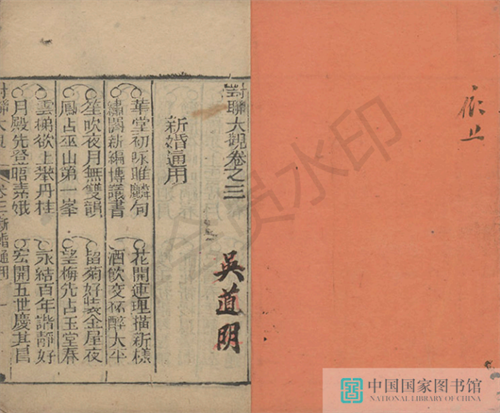 對聯大觀卷之三
新婚通用
華堂初咏雎麟句
花開連理描新樣
繡閣新編博議書
酒飲交杯醉大平
笙吹夜月無雙韻
留菊好裝金屋夜
鳳占巫山第一峯
望梅先占玉堂春
雲梯欲上攀丹桂
永結百年諧靜好
月殿先登晤素娥
宏開五世慶其昌
對聯大觀
卷三新婚通用
一
吳道明
會员水印
中国国家图书馆
NATIONAL LIBRARY OF CHINA